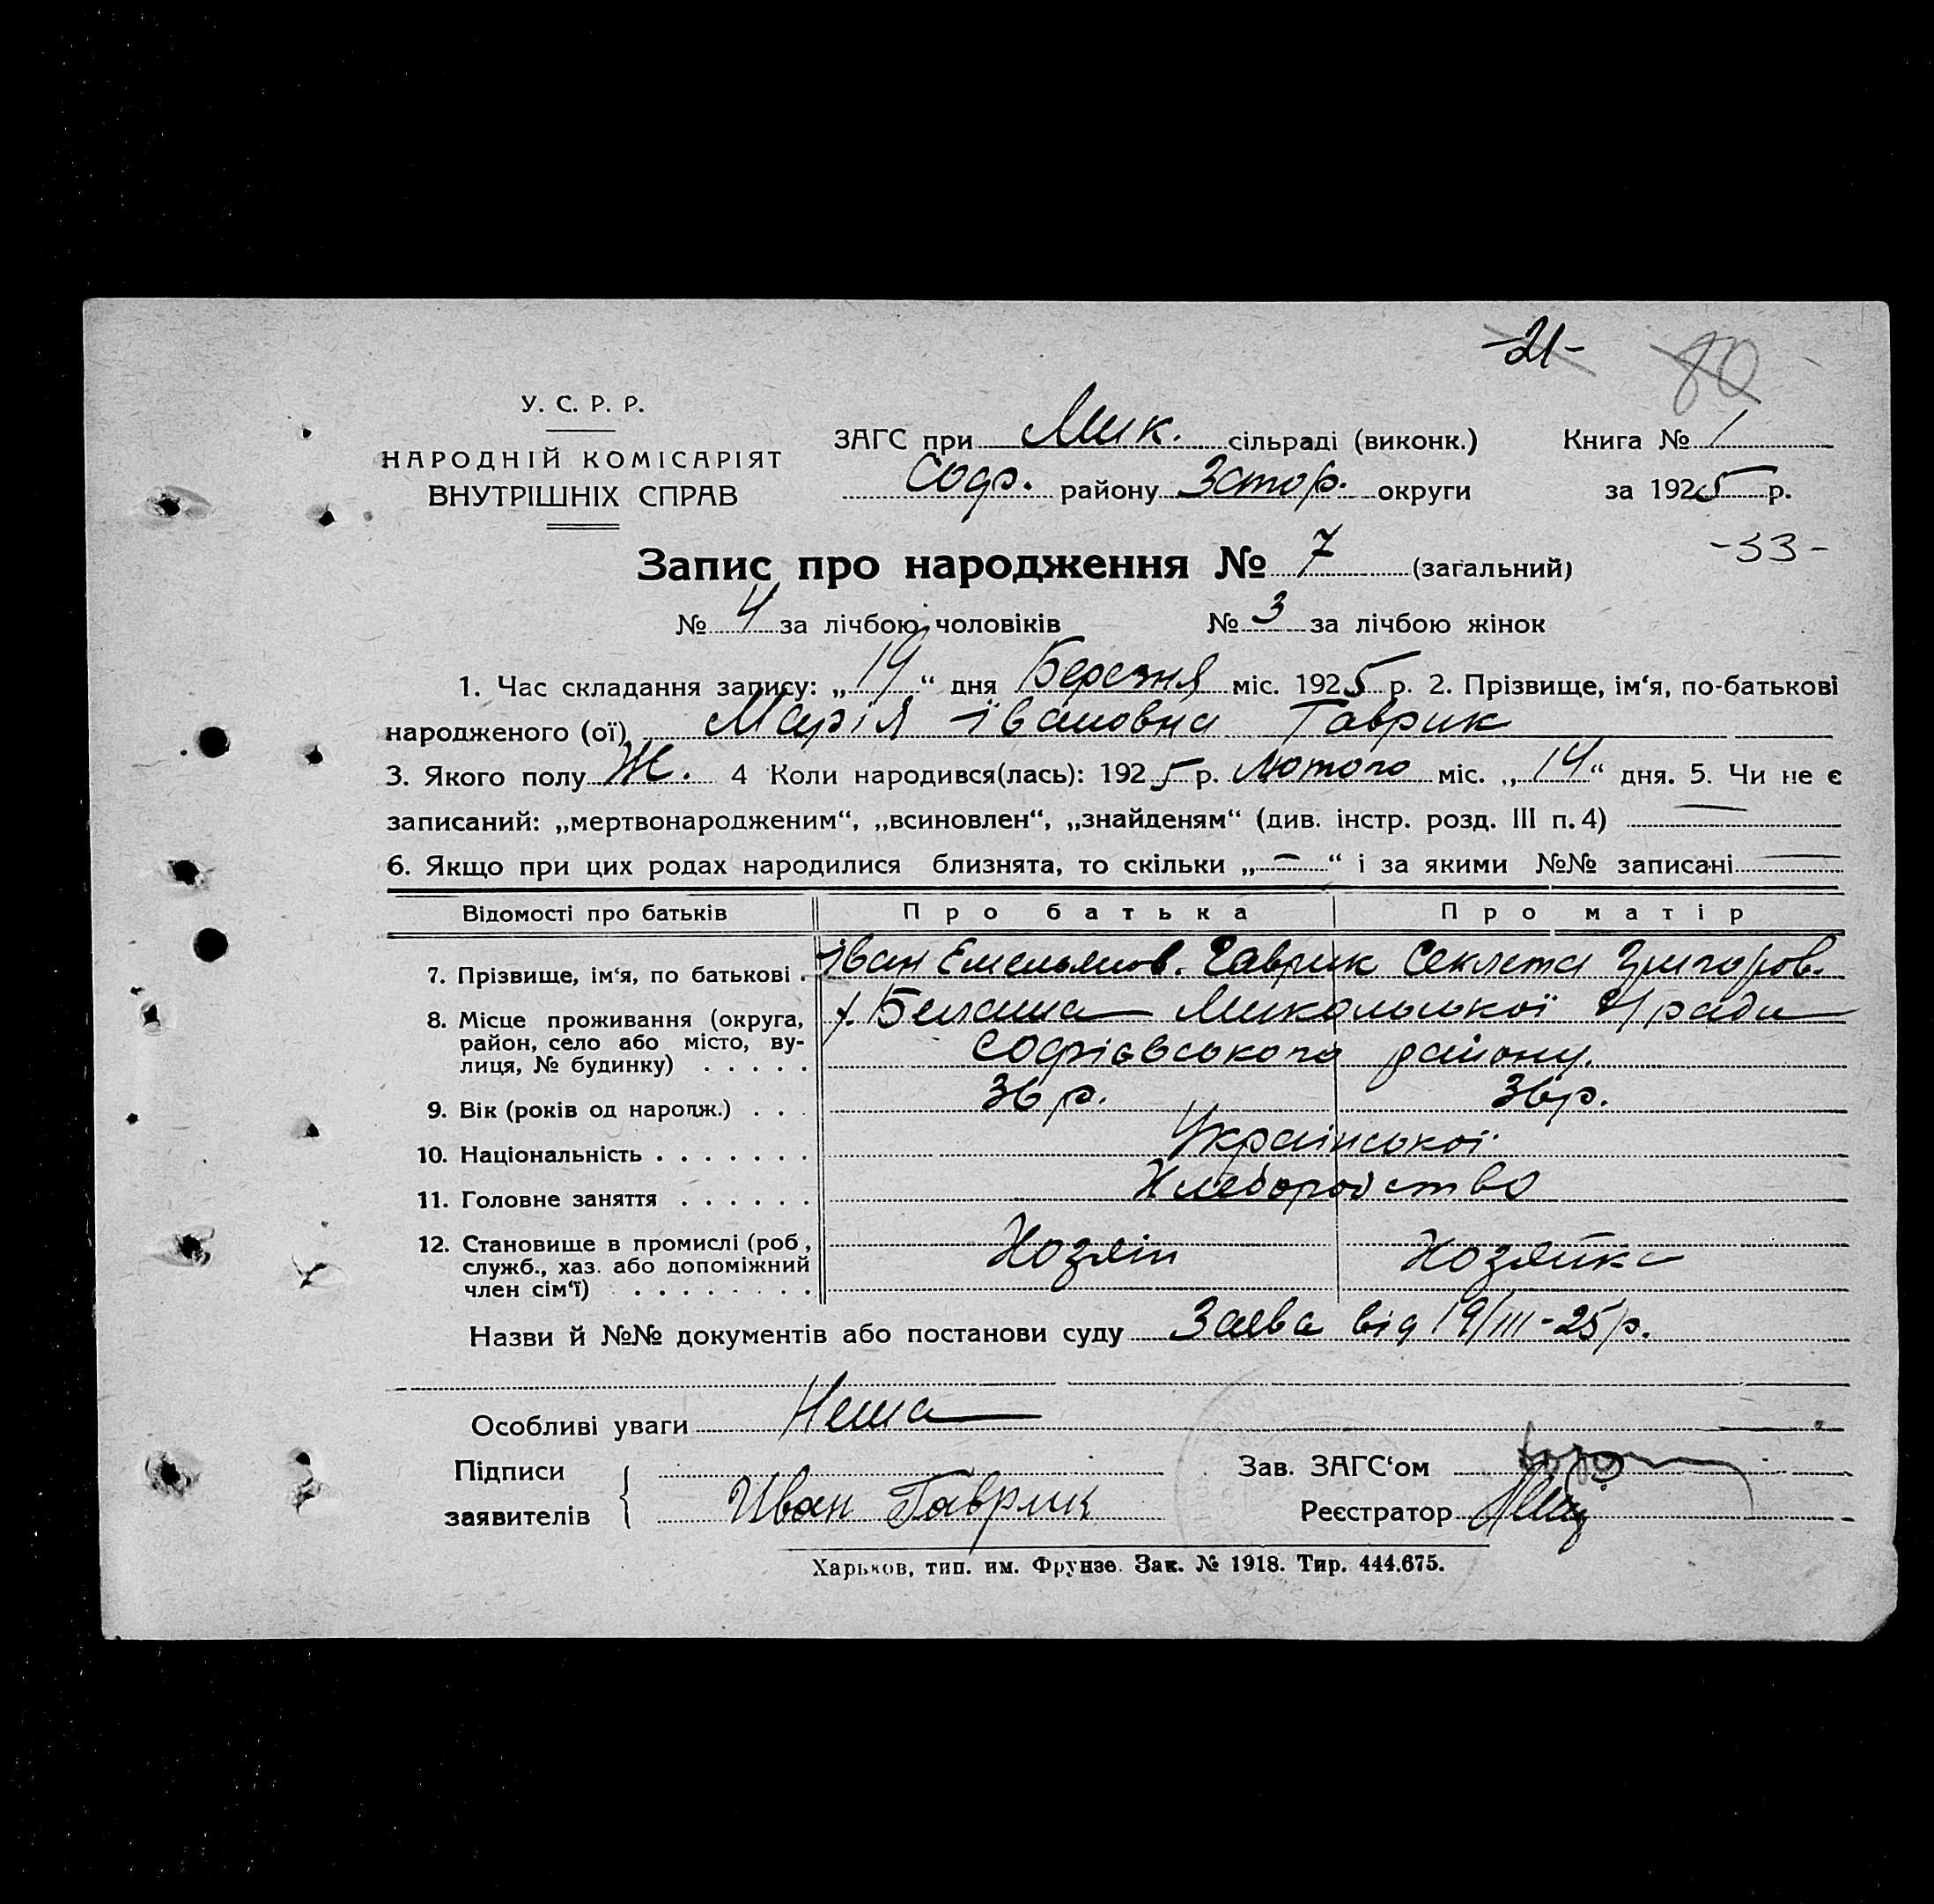 -21- 80
У. С. Р. Р.
НАРОДНІЙ КОМІСАРІЯТ
ВНУТРІШНІХ СПРАВ
ЗАГС при Мик. сільраді (виконк.) Книга № 1
Соф. району Зспор. округи за 1925 р.
Запис про народження № 7 (загальний) -33-
№ 4 за лічбою чоловіків № 3 за лічбою жінок
1. Час складання запису: „19“ дня Березня міс. 1925 р. 2. Прізвище, ім‘я, по-батькові
народженого (ої) Марія Івановна Гаврик
3. Якого полу Ж. 4 Коли народився(лась): 1925 р. Лютого міс. „14“ дня. 5. Чи не є
записаний: „мертвонародженим“, „всиновлен“, „знайденям“ (див. інстр. розд. III п. 4) —
6. Якщо при цих родах народилися близнята, то скільки „—“ і за якими №№ записані —
Відомості про батьків Про батька Про матір
7. Прізвище, ім‘я, по батькові . Іван Емельянов. Гаврик Секлета Григоров.
8. Місце проживання (округа, х. Белаша Микольської С/ради
район, село або місто, ву- Софіевського району.
лиця, № будинку) . . . . .
9. Вік (років од народж.) . . . 36 р. 36 р.
10. Національність . . . . . . . Української
11. Головне заняття . . . . . . Хлеборобство
12. Становище в промислі (роб., Хозяін Хозяйка
служб., хаз. або допоміжний
член сім‘ї) . . . . . . . .
Назви й №№ документів або постанови суду Заява від 19/III-25 р.
Особливі уваги Нема
Підписи Зав. ЗАГС‘ом
заявителів Иван Гаврик Реєстратор
Харьков, тип. им. Фрунзе. Зак. № 1918. Тир. 444.675.